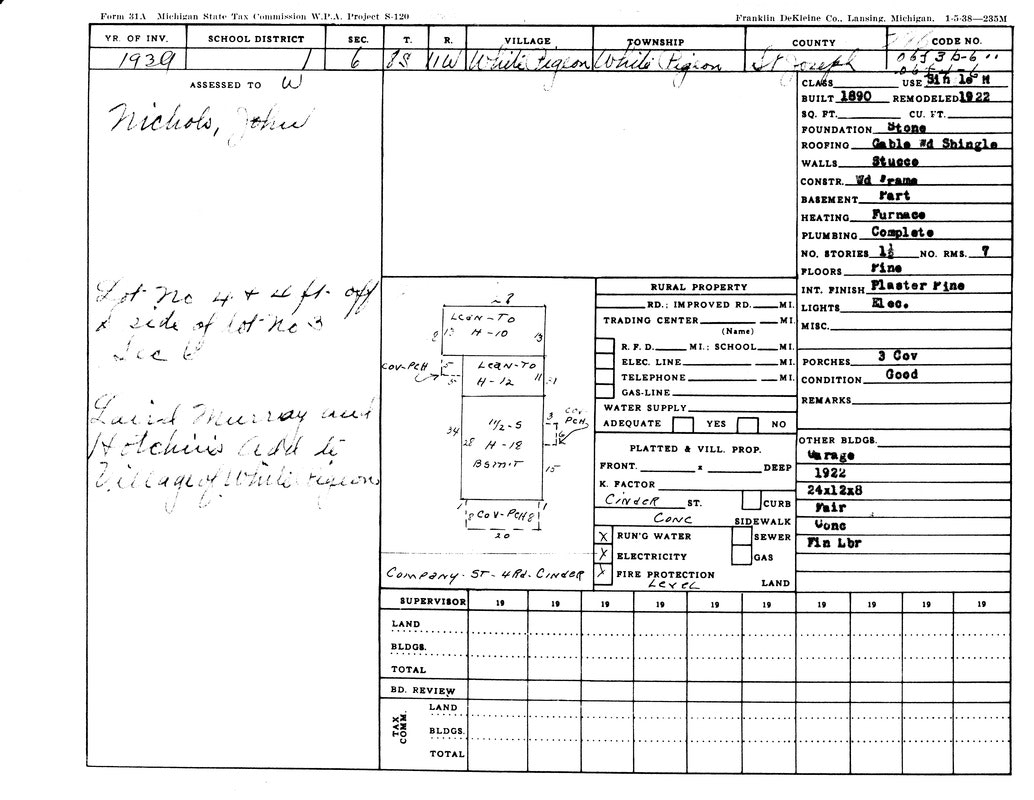 Form 31A Michigan State Tax Commission W.P.A. Project S-120
Franklin DeKleine Co., Lansing, Michigan. 1-5-38—235M
YR. OF INV. SCHOOL DISTRICT SEC. T. R. VILLAGE TOWNSHIP COUNTY CODE NO.
1939 1 6 8S 11W White Pigeon White Pigeon St Joseph
ASSESSED TO W
Nichols, John
Lot No 4 + 4 ft. off
side of lot No 3
Sec 6
Laird Murray and
Hotchins Add to
Village of White Pigeon
CLASS USE
BUILT 1890 REMODELED 1922
SQ. FT. CU. FT.
FOUNDATION Stone
ROOFING Gable Wd Shingle
WALLS Stucco
CONSTR. Wd Frame
BASEMENT Part
HEATING Furnace
PLUMBING Complete
NO. STORIES 1½ NO. RMS. 7
FLOORS Pine
INT. FINISH Plaster Pine
LIGHTS Elec.
MISC.
PORCHES 3 Cov
CONDITION Good
REMARKS
OTHER BLDGS.
Garage
1922
24x12x8
Fair
Conc
Fin Lbr
28
LEAN-TO
8 13 H-10 13
COV-PCH 5
5
LEAN-TO
H-12 11 31
34
1 1/2-S
28 H-18
BSMIT 15
3 COV
PCH
6
1 1
8 COV-PCH 8
20
COMPANY-ST-4Rd-CINDER
RURAL PROPERTY
RD.; IMPROVED RD. MI.
TRADING CENTER MI.
(Name)
R. F. D. MI.; SCHOOL MI.
ELEC. LINE MI.
TELEPHONE MI.
GAS-LINE
WATER SUPPLY
ADEQUATE YES NO
PLATTED & VILL. PROP.
FRONT. x DEEP
K. FACTOR
CINDER ST. CURB
CONC SIDEWALK
X RUN'G WATER SEWER
X ELECTRICITY GAS
X FIRE PROTECTION
LEVEL LAND
SUPERVISOR 19 19 19 19 19 19 19 19 19 19
LAND
BLDGS.
TOTAL
BD. REVIEW
TAX COMM.
LAND
BLDGS.
TOTAL